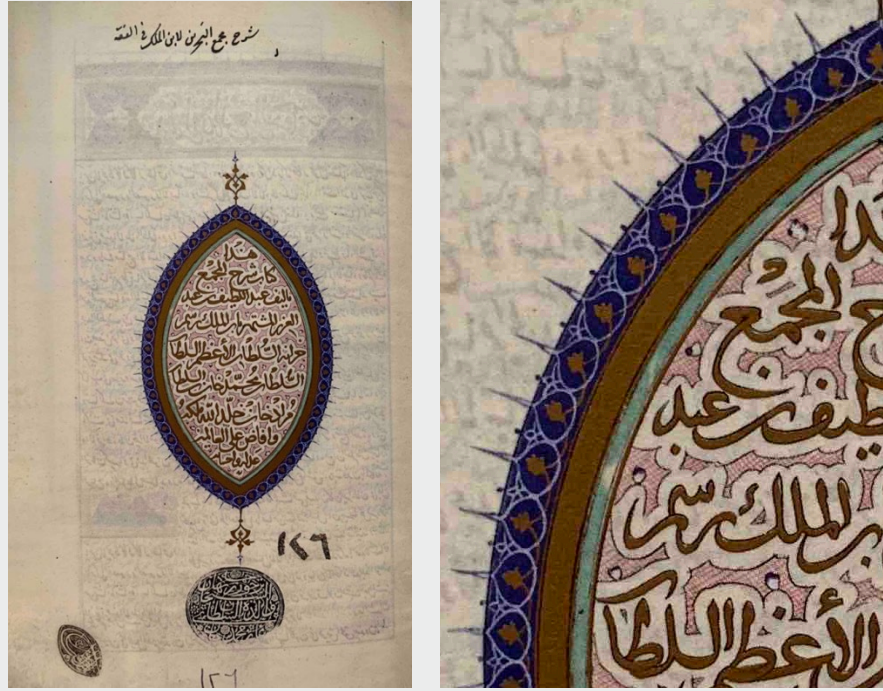 شرح مجمع البحرين لابن الملك في الفقه
هذا
كتاب شرح المجمع
تأليف عبد اللطيف بن عبد
العزيز المشتهر بابن الملك برسم
خزانة السلطان الأعظم السلطان
السلطان محمد خان بن السلطان
مراد خان خلد الله ملكه
وأفاض على العالمين
عدله وإحسانه
١٤٦
١٢٦
المجمع
طيف بن عبد
الملك برسم
الأعظم السلطا